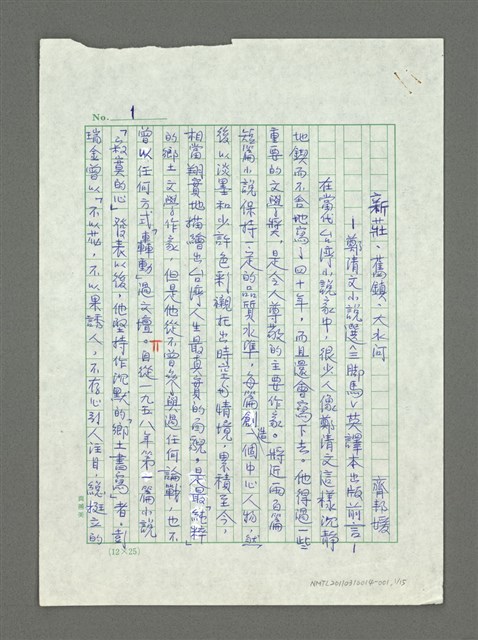 No. 1
新莊、舊鎮、大水河
—鄭清文小說選《三脚馬》英譯本出版前言—
齊邦媛
在當代台湾小說家中，很少人像鄭清文這樣沉静
地鍥而不舍地寫了四十年，而且還會寫下去。他得過一些
重要的文學獎，是令人尊敬的主要作家。將近兩百篇
短篇小說保持一定的品質水準，每篇創造一個中心人物，然
後以淡墨和少許色彩襯托出時空和情境，累積至今，
相當翔實地描繪出台湾人生最真實的面貌。是最「純粹」
的鄉土文學作家，但是他從不曾參與過任何論戰，也不
曾以任何方式「轟動」過文壇。自從一九五八年第一篇小說
「寂寞的心」發表以後，他堅持作沉默的「鄉土書寫」者，彭
瑞金曾以「不以花，不以果誘人，不存心引人注目，總挺立的
(12×25)
NMTL20110310014-001, 1/15